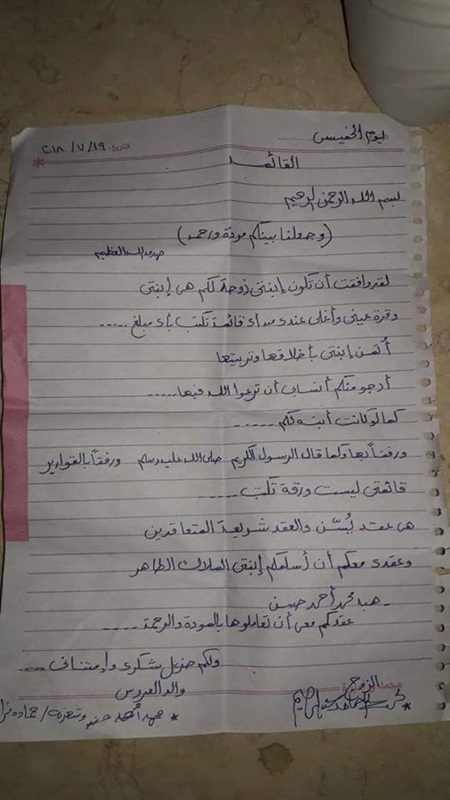 ليوم الخميس
التاريخ: ١٩/ ٧/ ٢٠١٨
القائمة
بسم الله الرحمن الرحيم
(وجعلنا بينكم مودة ورحمة)
صدق الله العظيم
لقد وافقت أن تكون إبنتى زوجة لكم هى إبنتى
وقرة عينى وأغلى عندى من أى قائمة تكتب بأى مبلغ .....
أثمن إبنتى بأخلاقها وتربيتها
أرجو منكم أنسابى أن ترعوا الله فيها .....
كما لو كانت أبنه لكم .....
ورفقاً بها وكما قال الرسول الكريم صلى الله عليه وسلم ورفقاً بالقوارير
قائمتى ليست ورقة تكتب .....
هى عقد بُيّن والعقد شريعة المتعاقدين
وعقدى معكم أن أسلمكم إبنتى الملاك الطاهر
- هبه محمد أحمد حسن
عقدكم معى أن تعاملوها بالمودة والرحمة .....
ولكم جزيل شكرى وإمتنانى .....
الزوج
والد العروس
محمد أحمد حسن وشهرته / حماده